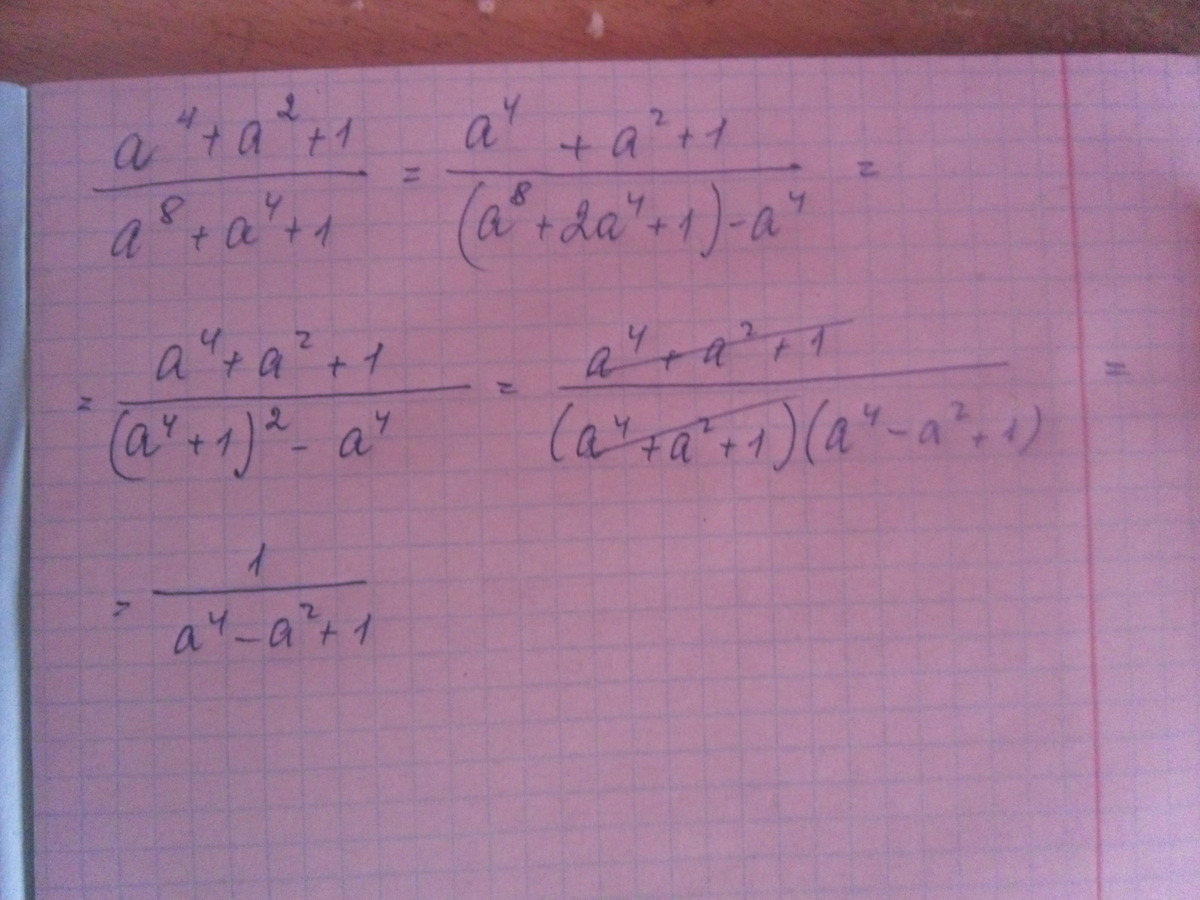 (a⁴ + a² + 1)/(a⁸ + a⁴ + 1) = (a⁴ + a² + 1)/((a⁸ + 2a⁴ + 1) - a⁴) =
= (a⁴ + a² + 1)/((a⁴ + 1)² - a⁴) = (a⁴ + a² + 1)/((a⁴ + a² + 1)(a⁴ - a² + 1)) =
= 1/(a⁴ - a² + 1)